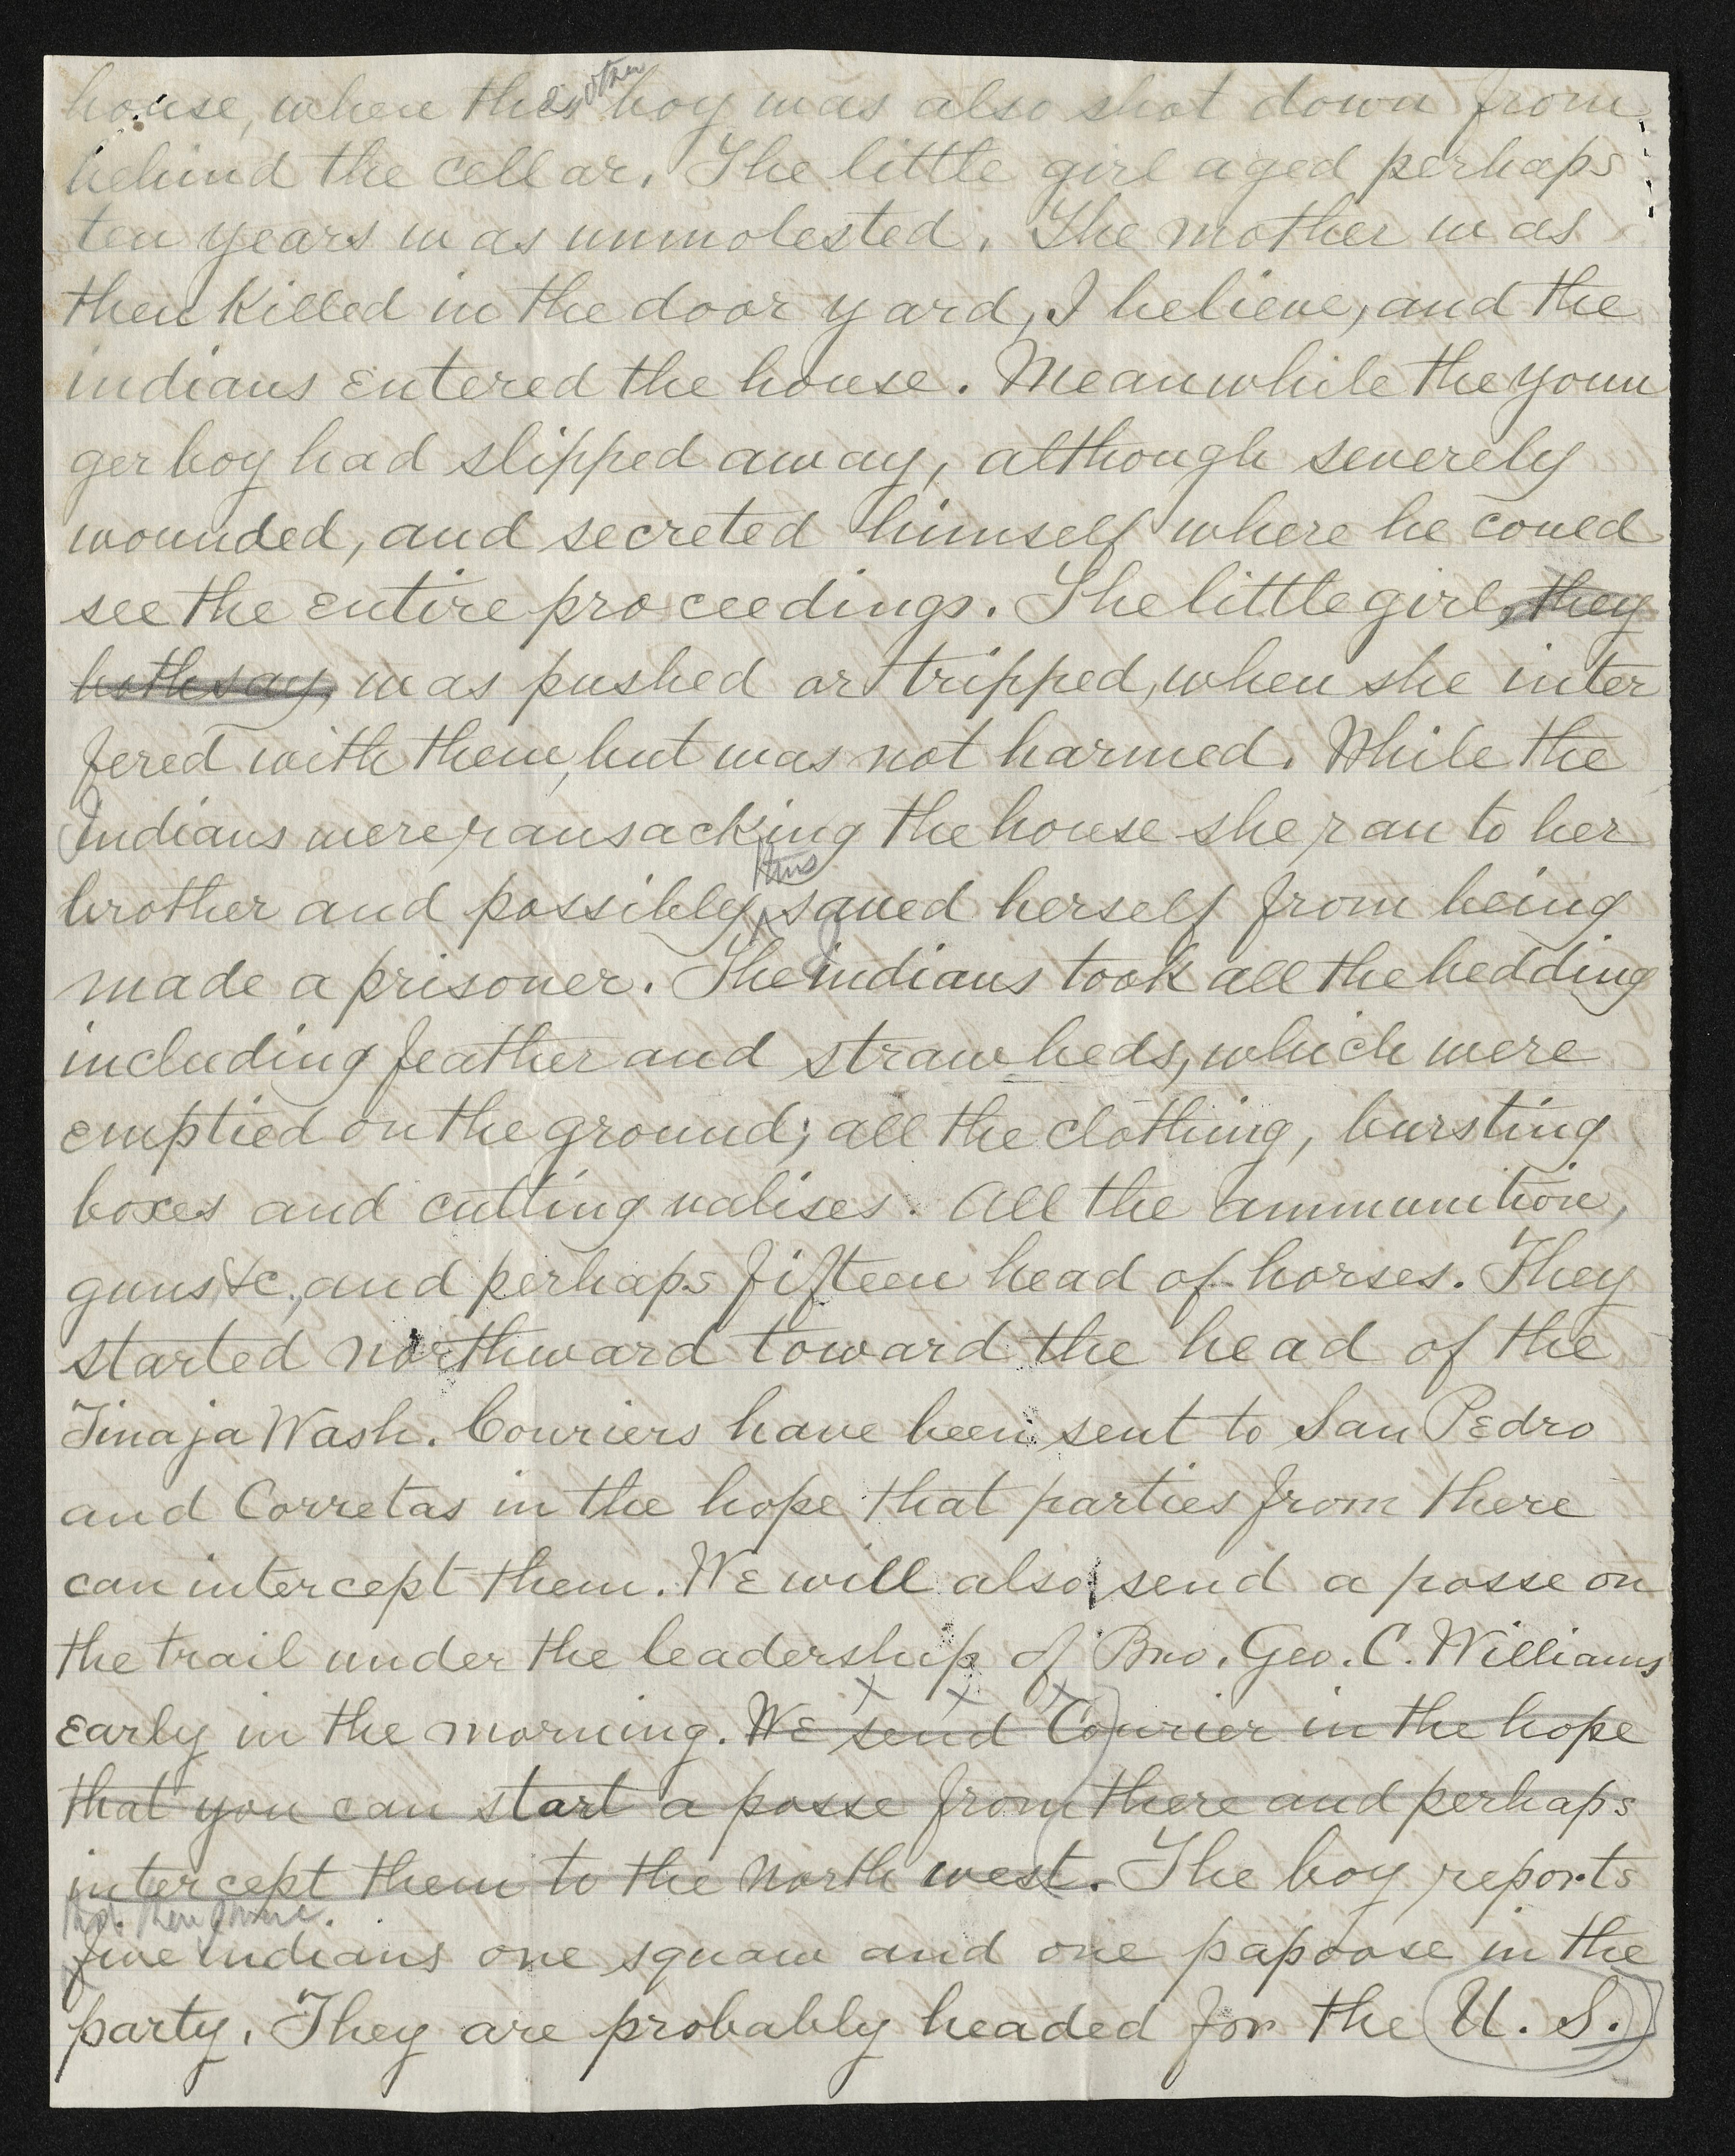 house, when this other boy was also shot down from
behind the cellar. The little girl aged perhaps
ten years was unmolested. The mother was
then killed in the door yard, I believe, and the
indians entered the house. Meanwhile the youn
ger boy had slipped away, although severely
wounded, and secreted himself where he could
see the entire proceedings. The little girl, they
both say, was pushed or tripped, when she inter
fered with them, but was not harmed. While the
Indians were ransacking the house she ran to her
thus
brother and possibly saved herself from being
made a prisoner. The indians took all the bedding
including feather and straw beds, which were
emptied on the ground; all the clothing, bursting
boxes and cutting valises. All the ammunition,
guns &c., and perhaps fifteen head of horses. They
started northward toward the head of the
Tinaja Wash. Couriers have been sent to San Pedro
and Corretas in the hope that parties from there
can intercept them. We will also send a posse on
the trail under the leadership of Bro. Geo. C. Williams
early in the morning. We send Courier in the hope
that you can start a posse from there and perhaps
intercept them to the North west. The boy reports
that there were
five indians one squaw and one papoose in the
party. They are probably headed for the U. S.